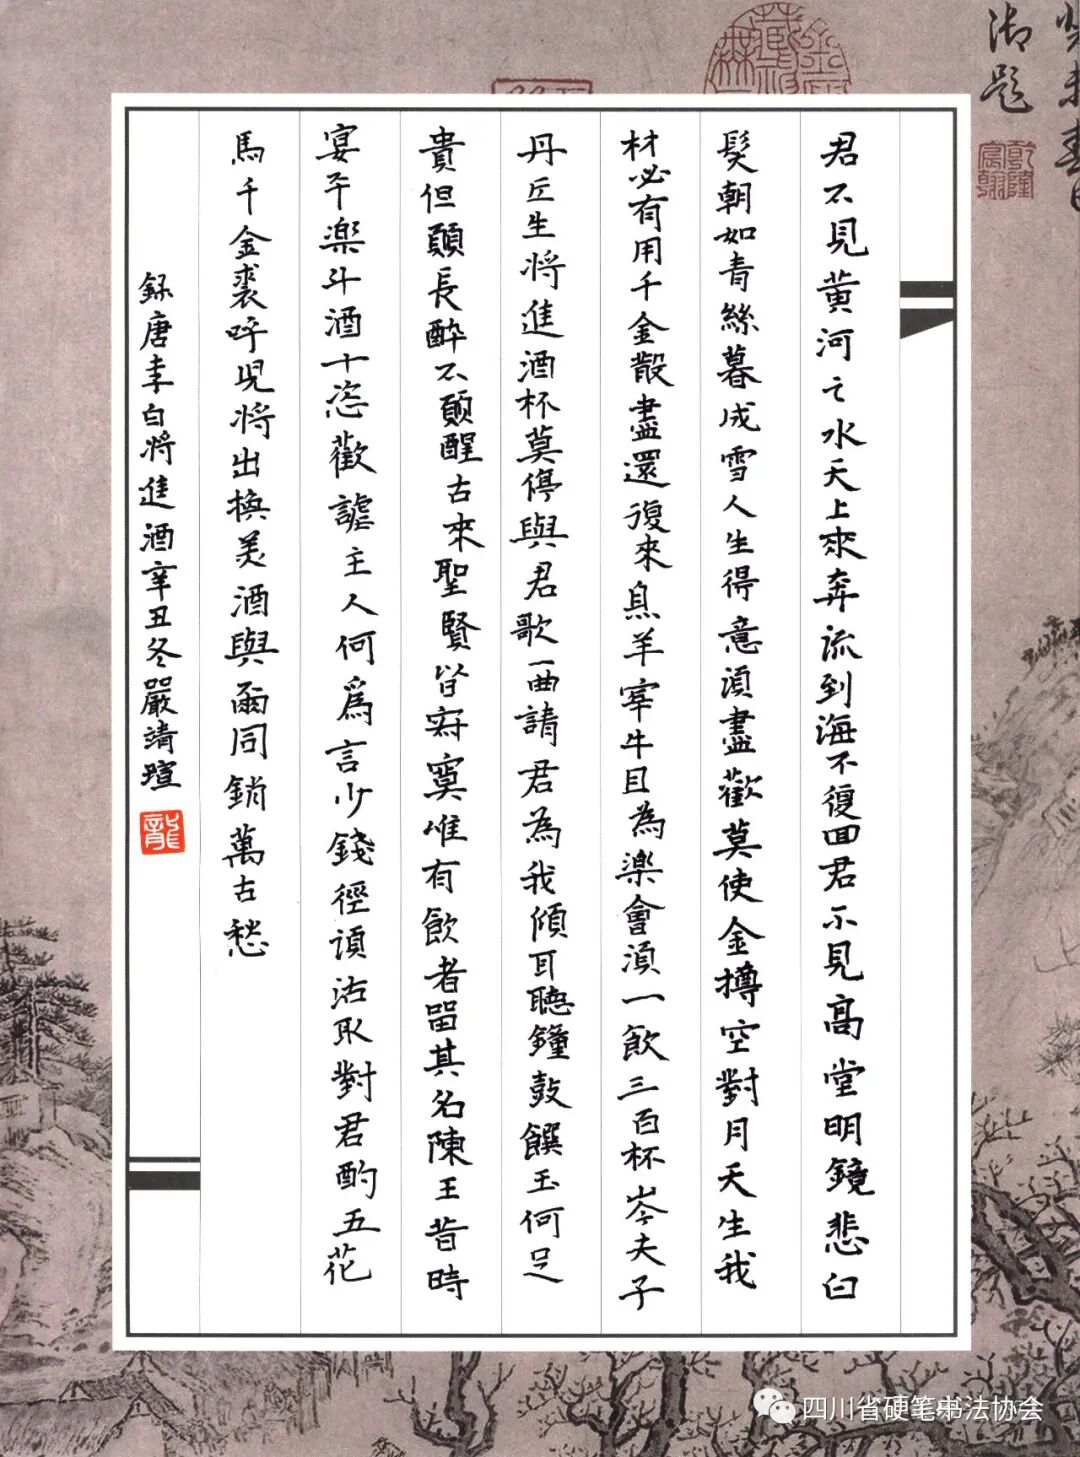 君不見黄河之水天上來奔流到海不復回君不見高堂明鏡悲白
髮朝如青絲暮成雪人生得意須盡歡莫使金樽空對月天生我
材必有用千金散盡還復來烹羊宰牛且為楽會須一飲三百杯岑夫子
丹丘生將進酒杯莫停與君歌一曲請君為我傾耳聽鐘鼓饌玉何足
貴但願長醉不願醒古來聖賢皆寂寞惟有飲者留其名陳王昔時
宴平楽斗酒十恣歡謔主人何爲言少錢徑須沽取對君酌五花
馬千金裘呼児將出換美酒與爾同銷萬古愁
録唐李白將進酒辛丑冬嚴靖瑄
龍
御題
乾隆宸翰
四川省硬笔书法协会